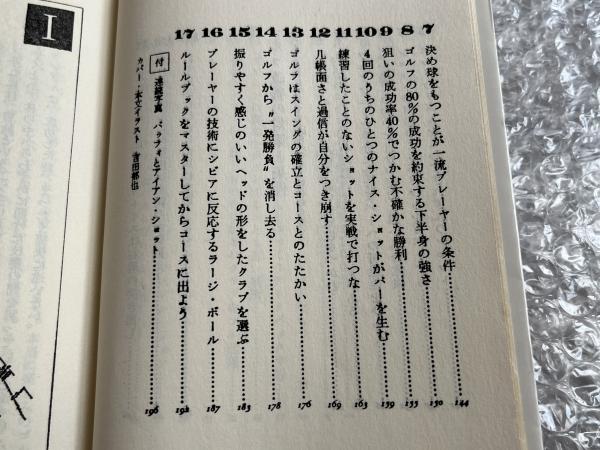 7 決め球をもつことが一流プレーヤーの条件 144
8 ゴルフの80%の成功を約束する下半身の強さ 150
9 狙いの成功率40%でつかむ不確かな勝利 155
10 4回のうちのひとつのナイス・ショットがパーを生む 159
11 練習したことのないショットを実戦で打つな 163
12 几帳面さと過信が自分をつき崩す 169
13 ゴルフはスイングの確立とコースとのたたかい 176
14 ゴルフから"一発勝負"を消し去る 178
15 振りやすく感じのいいヘッドの形をしたクラブを選ぶ 183
16 プレーヤーの技術にシビアに反応するラージ・ボール 187
17 ルールブックをマスターしてからコースに出よう 192
付 連続写真 バッフィとアイアン・ショット 196
カバー・本文イラスト 吉田郁也
I